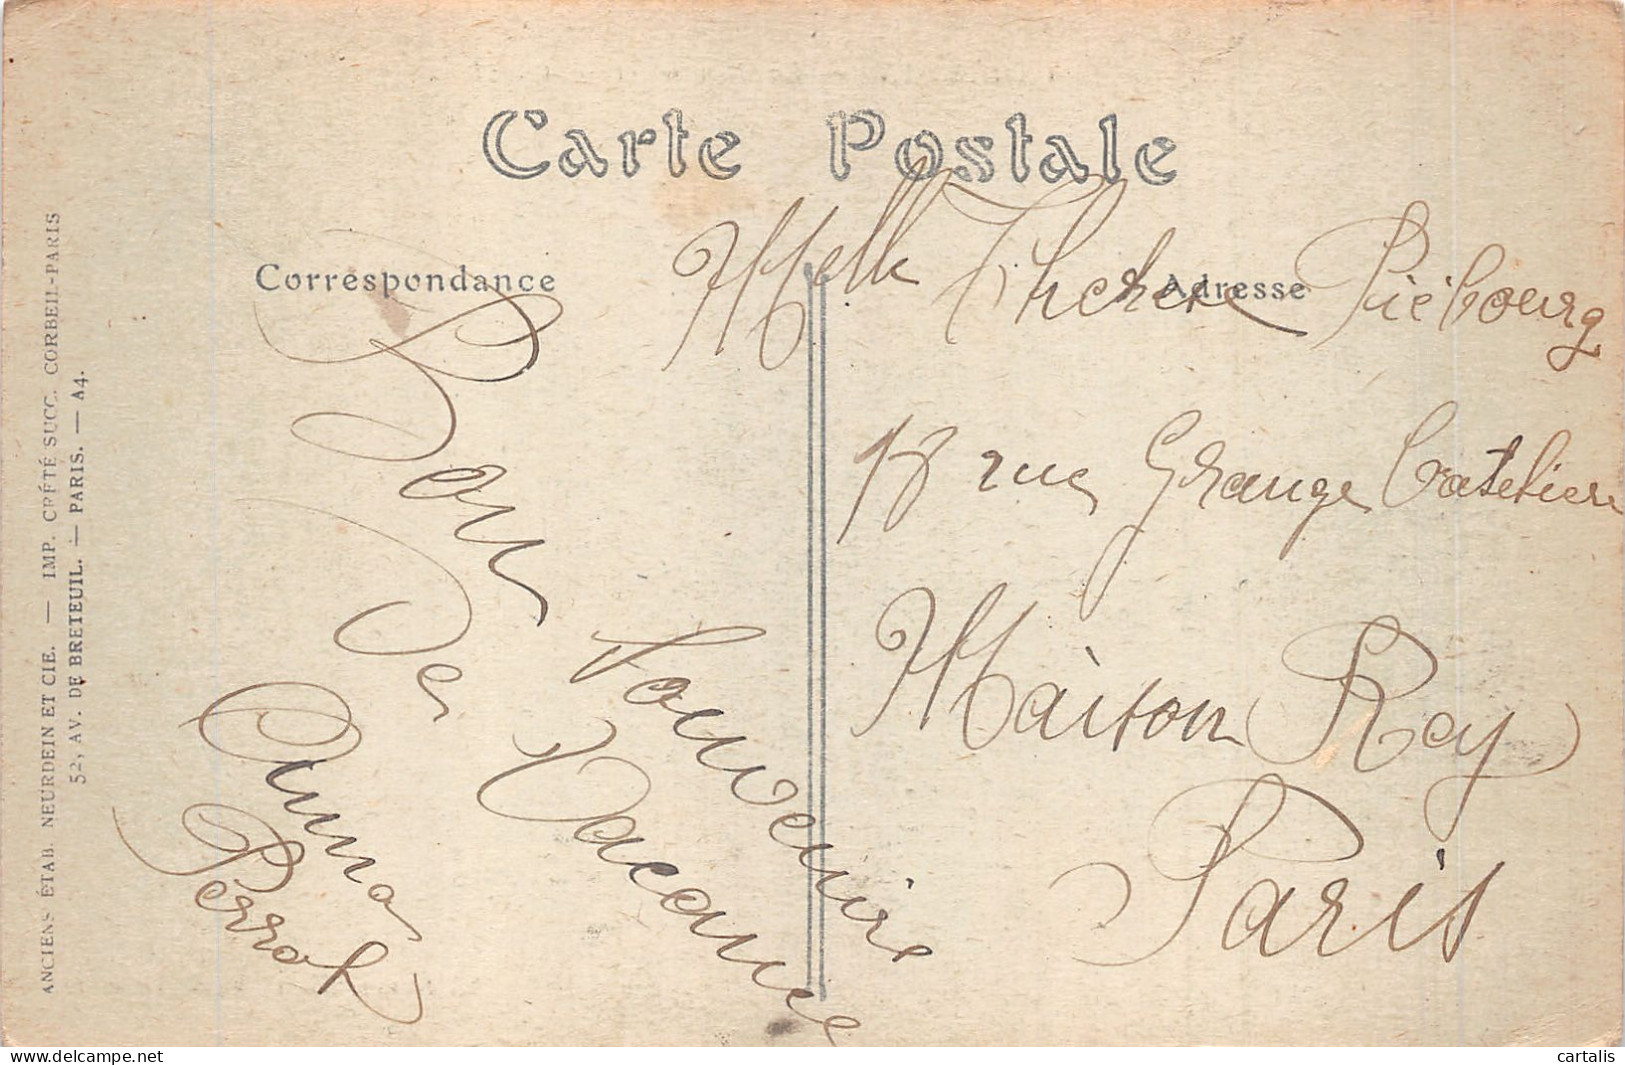 Carte Postale
Correspondance
Adresse
Melle Therese Piébourg
18 rue Grange Bateliere
Maison Rey
Paris
Bon Souvenire
De Vacance
Anna
Perrot
ANCIENS ÉTAB. NEURDEIN ET CIE. — IMP. CRÉTÉ SUCC. CORBEIL-PARIS
52, AV. DE BRETEUIL. — PARIS. — A4.
www.delcampe.net
cartalis